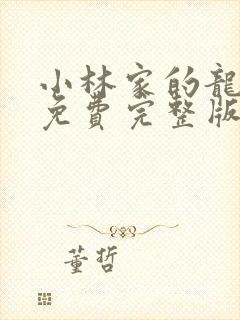 小林家的龍
免費完整版
董哲